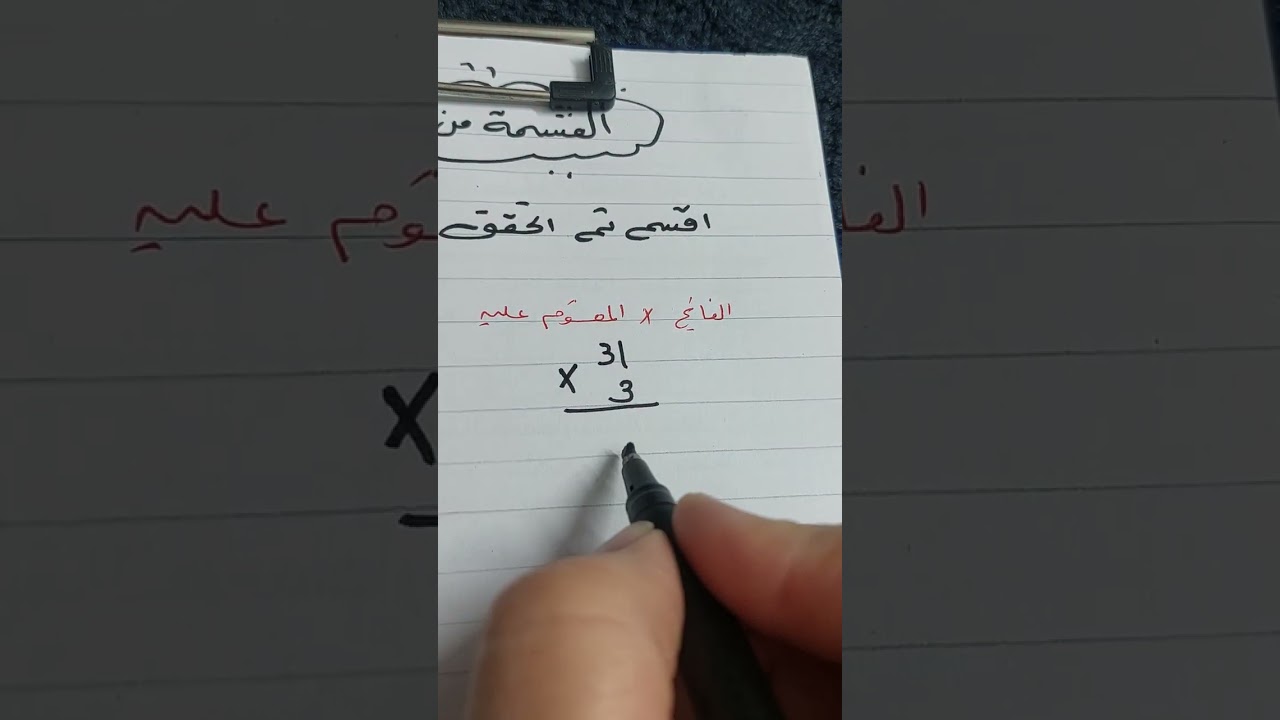 القسمة من
اقسم ثم اتحقق
الناتج × المقسوم عليه
31
× 3